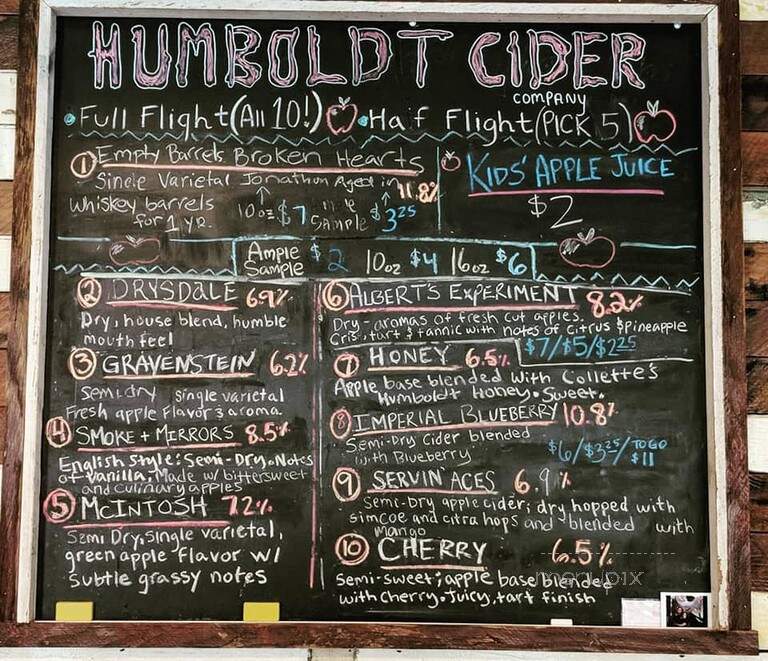 HUMBOLDT CIDER
COMPANY
Full Flight (All 10!) Half Flight (PICK 5)
① Empty Barrels Broken Hearts
Single Varietal Jonathon Aged in 11.8%
Whiskey barrels
for 1 yr.
10oz $7 Sample $3.25
KIDS' APPLE JUICE
$2
Ample
Sample $2 10oz $4 16oz $6
② DRYSDALE 6.9%
Dry, house blend, humble
mouth feel
③ GRAVENSTEIN 6.2%
Semi dry single varietal
Fresh apple flavor & aroma
④ SMOKE + MIRRORS 8.5%
English Style: Semi-Dry. Notes
of Vanilla, Made w/ bittersweet
and culinary apples
⑤ MCINTOSH 7.2%
Semi Dry, single varietal,
green apple flavor w/
subtle grassy notes
⑥ ALBERT'S EXPERIMENT 8.2%
Dry - aromas of fresh cut apples.
Crisp, tart & tannic with notes of citrus & pineapple
$7/$5/$2.25
⑦ HONEY 6.5%
Apple base blended with Collette's
Humboldt Honey. Sweet.
⑧ IMPERIAL BLUEBERRY 10.8%
Semi-Dry Cider blended
with Blueberry
$6/$3.25/TO GO
$11
⑨ SERVIN' ACES 6.9%
Semi-Dry apple cider; dry hopped with
simcoe and citra hops and blended with
mango
⑩ CHERRY 6.5%
semi-sweet; apple base blended
with cherry. Juicy, tart finish